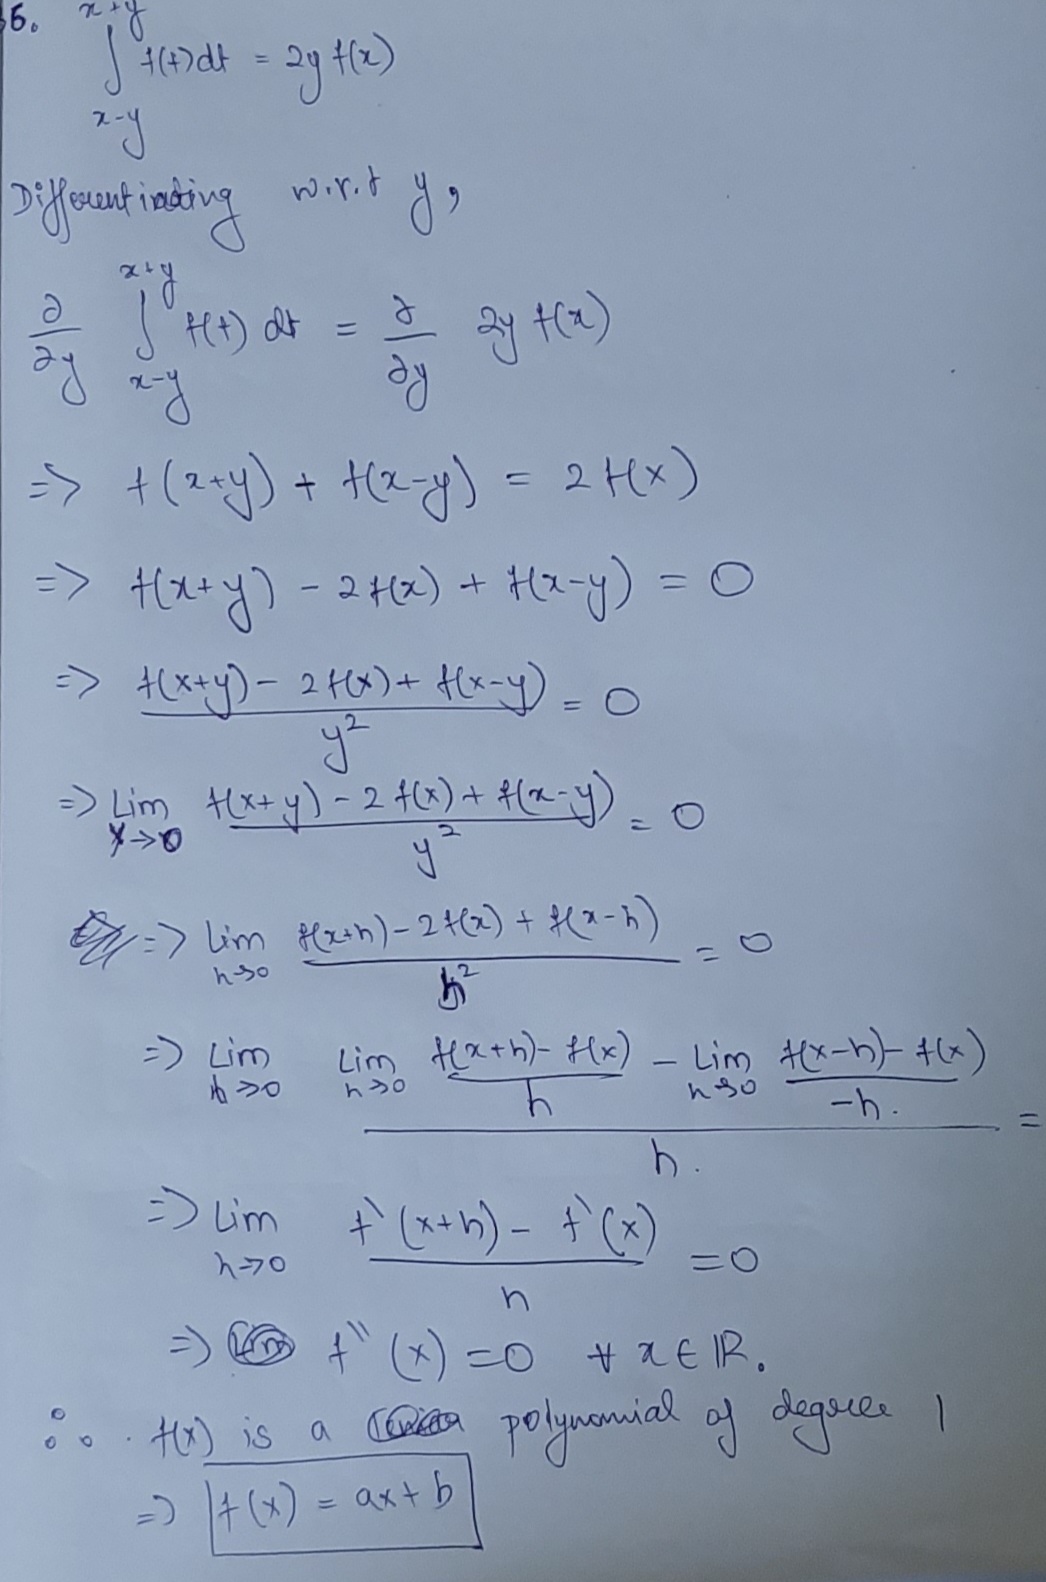 36.
∫_{x-y}^{x+y} f(t)dt = 2y f(x)
Differentiating w.r.t y,
∂/∂y ∫_{x-y}^{x+y} f(t) dt = ∂/∂y 2y f(x)
=> f(x+y) + f(x-y) = 2f(x)
=> f(x+y) - 2f(x) + f(x-y) = 0
=> (f(x+y) - 2f(x) + f(x-y))/y² = 0
=> Lim_{y→0} (f(x+y) - 2f(x) + f(x-y))/y² = 0
=> Lim_{h→0} (f(x+h) - 2f(x) + f(x-h))/h² = 0
=> Lim_{h→0} (Lim_{h→0} (f(x+h) - f(x))/h - Lim_{h→0} (f(x-h) - f(x))/-h.)/h. =
=> Lim_{h→0} (f'(x+h) - f'(x))/h = 0
=> f''(x) = 0 ∀ x ∈ ℝ.
∴ f(x) is a polynomial of degree 1
=> f(x) = ax + b